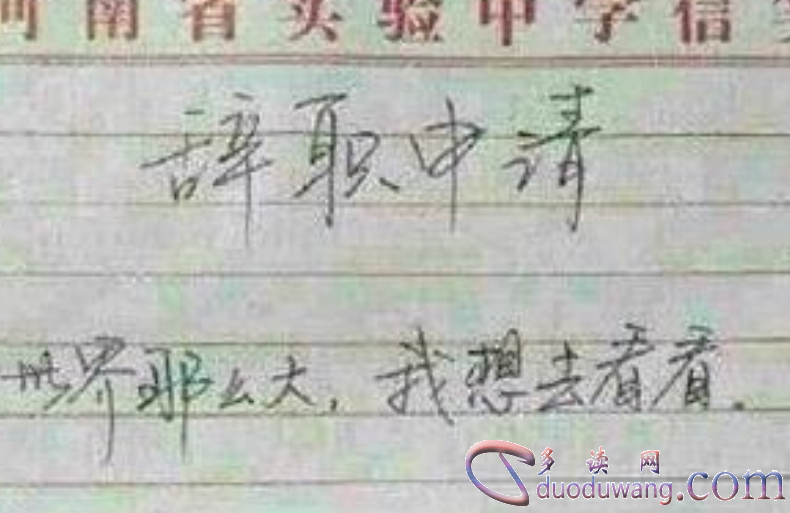 河南省实验中学信笺
辞职申请
世界那么大，我想去看看。
多读网
duoduwang.com